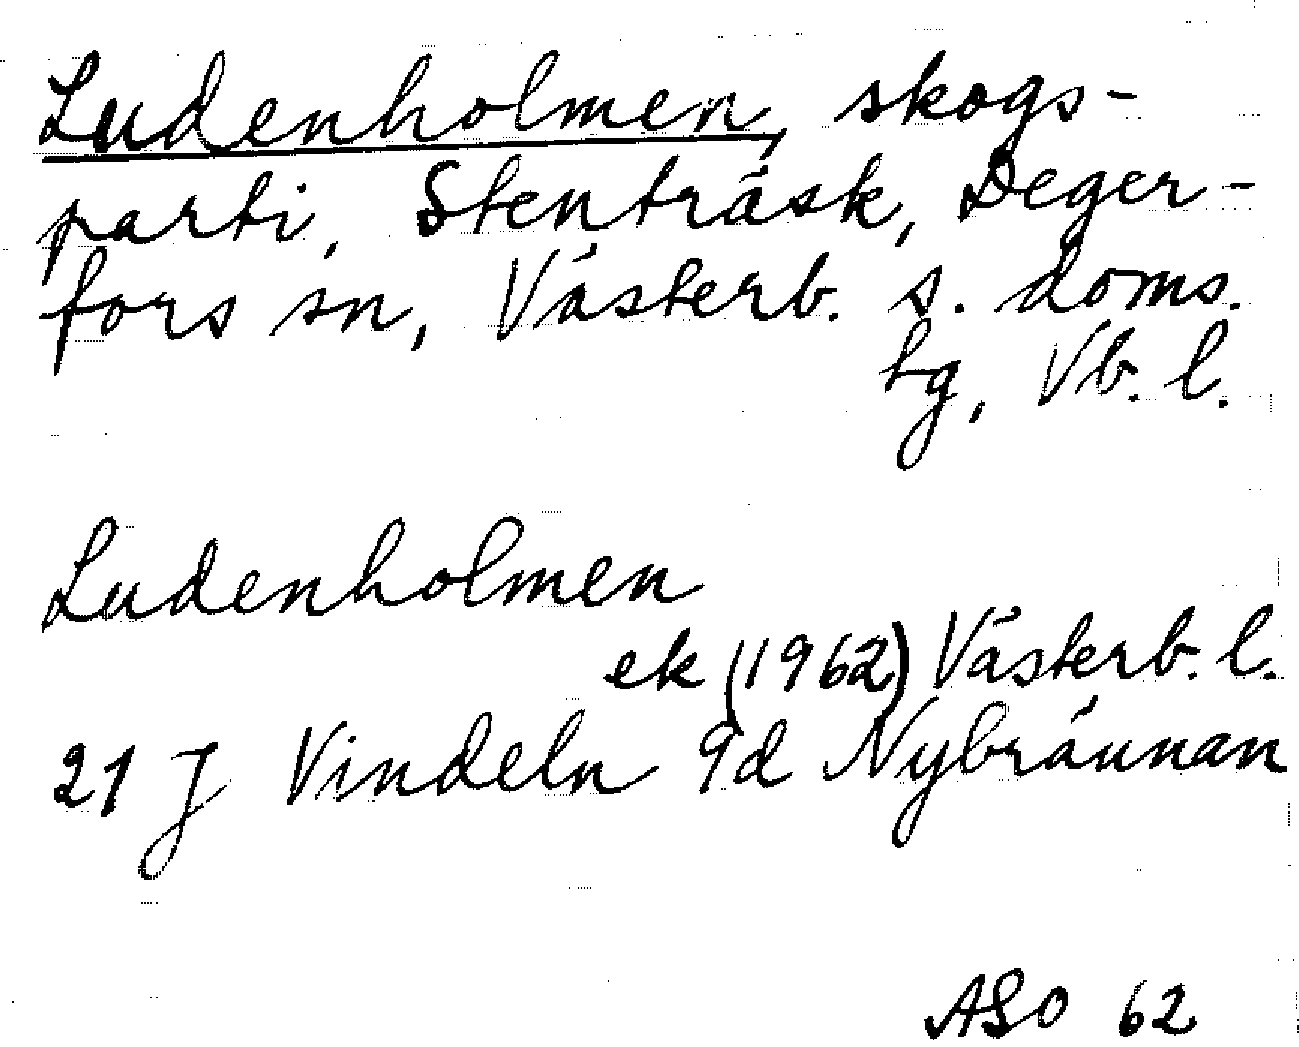 Ludenholmen, skogs-
parti, Stenträsk, Deger-
fors sn, Västerb. s. doms.
hg, Vb. l.
Ludenholmen
ek (1962) Västerb. l.
21 J Vindeln 9d Nybrännan
ASO 62